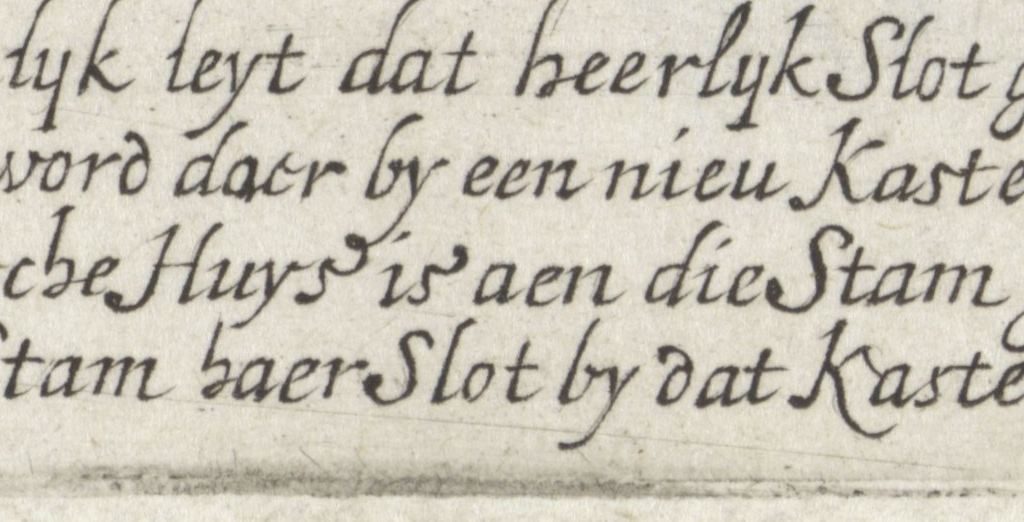 lyk leyt dat heerlyk Slot g
word daer by een nieu Kaste
che Huys is aen die Stam g
Stam haer Slot by dat Kaste